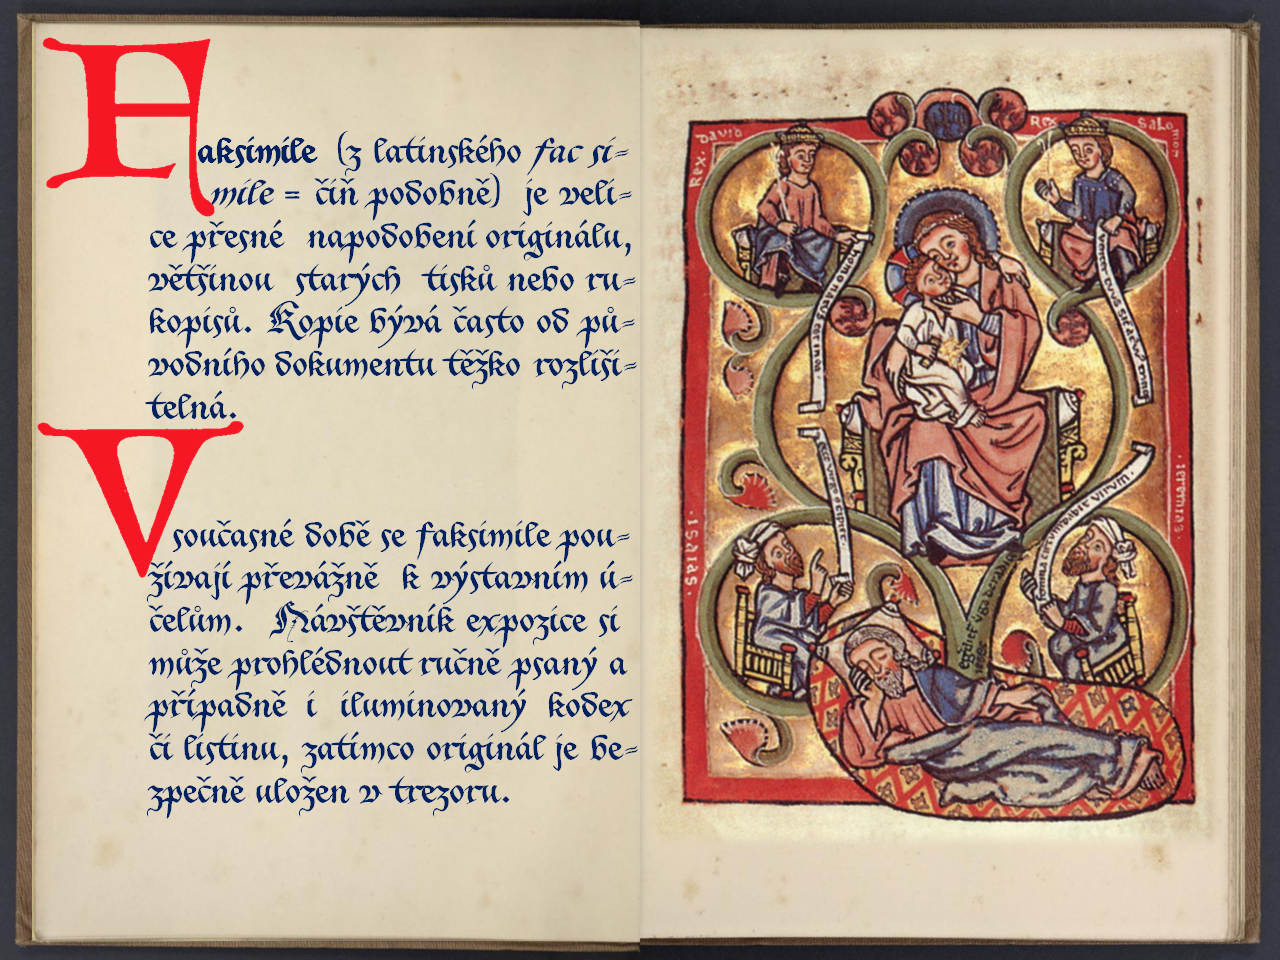 Faksimile (z latinského fac si=
mile = čiň podobně) je veli=
ce přesné napodobení originálu,
většinou starých tisků nebo ru=
kopisů. Kopie bývá často od pů=
vodního dokumentu těžko rozliši=
telná.
V současné době se faksimile pou=
žívají převážně k výstavním ú=
čelům. Návštěvník expozice si
může prohlédnout ručně psaný a
případně i iluminovaný kodex
či listinu, zatímco originál je be=
zpečně uložen v trezoru.
Rex. david
Rex Salomon
.ISaIaS.
.ieremias.